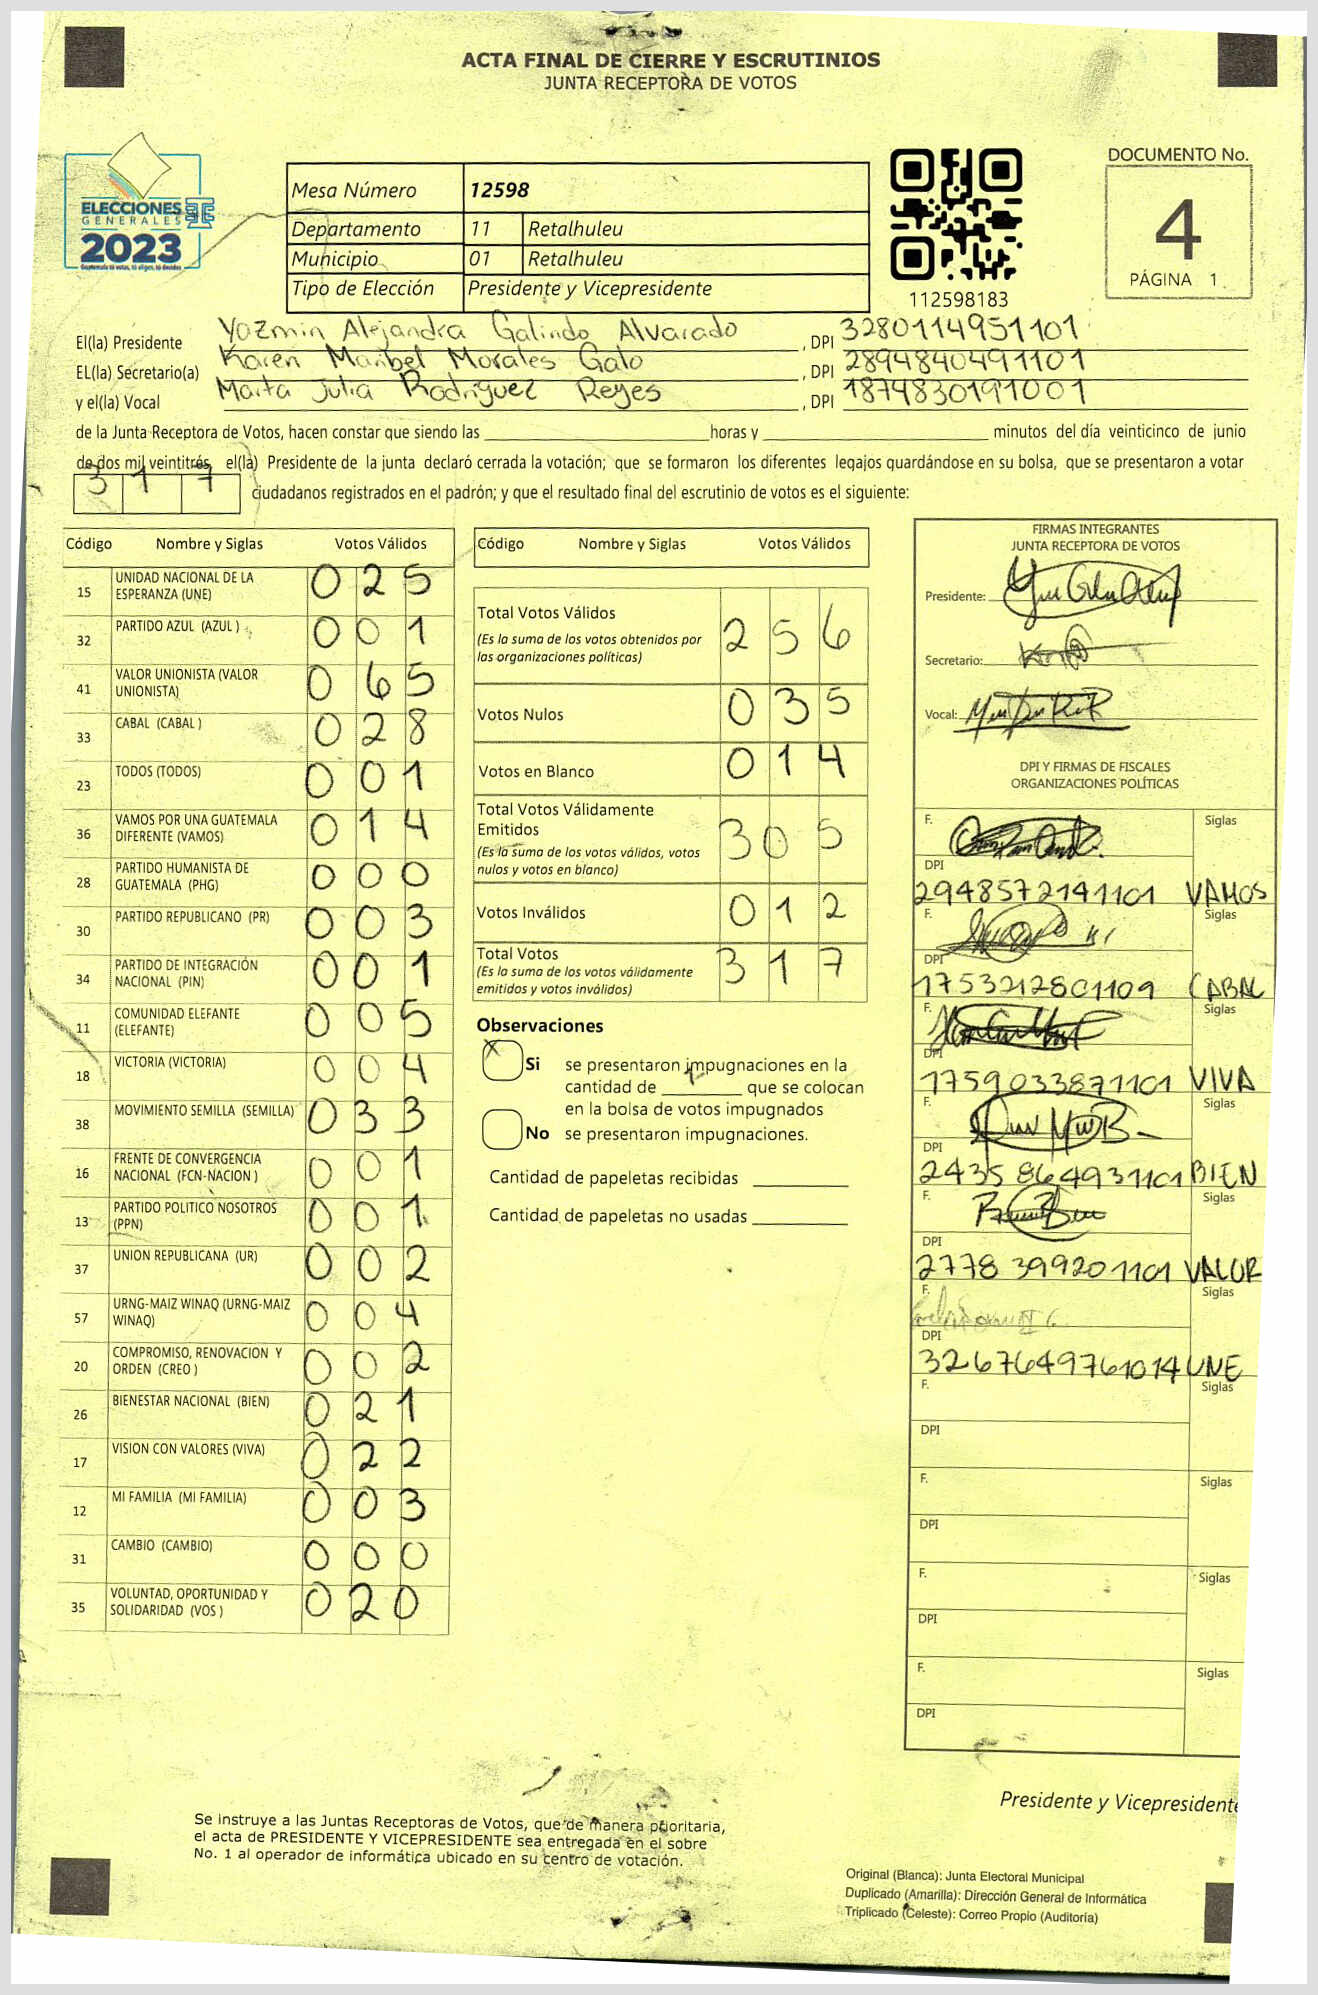 ACTA FINAL DE CIERRE Y ESCRUTINIOS
JUNTA RECEPTORA DE VOTOS
ELECCIONES
GENERALES
2023
Guatemala tú votas, tú eliges, tú decides
Mesa Número 12598
Departamento 11 Retalhuleu
Municipio 01 Retalhuleu
Tipo de Elección Presidente y Vicepresidente
112598183
DOCUMENTO No.
4
PÁGINA 1
El(la) Presidente Yazmin Alejandra Galindo Alvarado , DPI 3280114951101
EL(la) Secretario(a) Karen Maribel Morales Galo , DPI 2894840491101
y el(la) Vocal Marta Julia Rodriguez Reyes , DPI 1874830191001
de la Junta Receptora de Votos, hacen constar que siendo las horas y minutos del día veinticinco de junio
de dos mil veintitrés, el(la) Presidente de la junta declaró cerrada la votación; que se formaron los diferentes legajos guardándose en su bolsa, que se presentaron a votar
3 1 7 ciudadanos registrados en el padrón; y que el resultado final del escrutinio de votos es el siguiente:
Código Nombre y Siglas Votos Válidos
15 UNIDAD NACIONAL DE LA ESPERANZA (UNE) 0 2 5
32 PARTIDO AZUL (AZUL ) 0 0 1
41 VALOR UNIONISTA (VALOR UNIONISTA) 0 6 5
33 CABAL (CABAL ) 0 2 8
23 TODOS (TODOS) 0 0 1
36 VAMOS POR UNA GUATEMALA DIFERENTE (VAMOS) 0 1 4
28 PARTIDO HUMANISTA DE GUATEMALA (PHG) 0 0 0
30 PARTIDO REPUBLICANO (PR) 0 0 3
34 PARTIDO DE INTEGRACIÓN NACIONAL (PIN) 0 0 1
11 COMUNIDAD ELEFANTE (ELEFANTE) 0 0 5
18 VICTORIA (VICTORIA) 0 0 4
38 MOVIMIENTO SEMILLA (SEMILLA) 0 3 3
16 FRENTE DE CONVERGENCIA NACIONAL (FCN-NACION ) 0 0 1
13 PARTIDO POLITICO NOSOTROS (PPN) 0 0 1
37 UNION REPUBLICANA (UR) 0 0 2
57 URNG-MAIZ WINAQ (URNG-MAIZ WINAQ) 0 0 4
20 COMPROMISO, RENOVACION Y ORDEN (CREO ) 0 0 2
26 BIENESTAR NACIONAL (BIEN) 0 2 1
17 VISION CON VALORES (VIVA) 0 2 2
12 MI FAMILIA (MI FAMILIA) 0 0 3
31 CAMBIO (CAMBIO) 0 0 0
35 VOLUNTAD, OPORTUNIDAD Y SOLIDARIDAD (VOS ) 0 2 0
Código Nombre y Siglas Votos Válidos
Total Votos Válidos 2 5 6
(Es la suma de los votos obtenidos por
las organizaciones políticas)
Votos Nulos 0 3 5
Votos en Blanco 0 1 4
Total Votos Válidamente
Emitidos 3 0 5
(Es la suma de los votos válidos, votos
nulos y votos en blanco)
Votos Inválidos 0 1 2
Total Votos 3 1 7
(Es la suma de los votos válidamente
emitidos y votos inválidos)
Observaciones
X Si se presentaron impugnaciones en la
cantidad de 1 que se colocan
en la bolsa de votos impugnados
No se presentaron impugnaciones.
Cantidad de papeletas recibidas
Cantidad de papeletas no usadas
FIRMAS INTEGRANTES
JUNTA RECEPTORA DE VOTOS
Presidente:
Secretario:
Vocal:
DPI Y FIRMAS DE FISCALES
ORGANIZACIONES POLÍTICAS
F. Siglas
DPI
2948572141101 VAMOS
F. Siglas
DPI
1753212801109 CABAL
F. Siglas
DPI
1759033871101 VIVA
F. Siglas
DPI
2435864931101 BIEN
F. Siglas
DPI
2778399201101 VALOR
F. Siglas
DPI
3267649761014 UNE
F. Siglas
DPI
F. Siglas
DPI
F. Siglas
DPI
F. Siglas
DPI
Presidente y Vicepresidente
Se instruye a las Juntas Receptoras de Votos, que de manera prioritaria,
el acta de PRESIDENTE Y VICEPRESIDENTE sea entregada en el sobre
No. 1 al operador de informática ubicado en su centro de votación.
Original (Blanca): Junta Electoral Municipal
Duplicado (Amarilla): Dirección General de Informática
Triplicado (Celeste): Correo Propio (Auditoría)